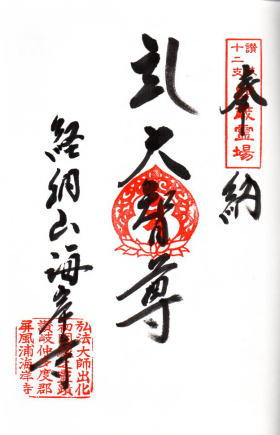 奉納
十二支
霊場
大智尊
経納山海岸寺
弘法大師出化
讃岐仲多度郡
屏風浦海岸寺